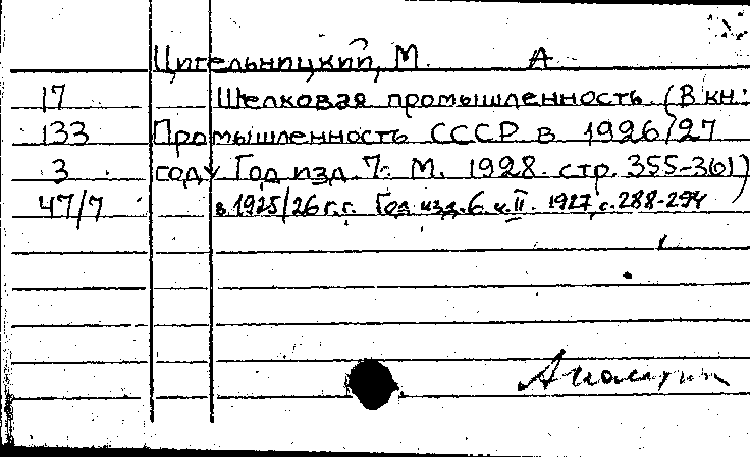 Цигельницкий, М. А
17 Шелковая промышленность (В кн:
133 Промышленность СССР в 1926/27
3 году Год изд. 7. М. 1928. стр. 355-361)
47/7 в 1925/26 г.г. Год изд. 6. ч. II. 1927, с. 288-294)